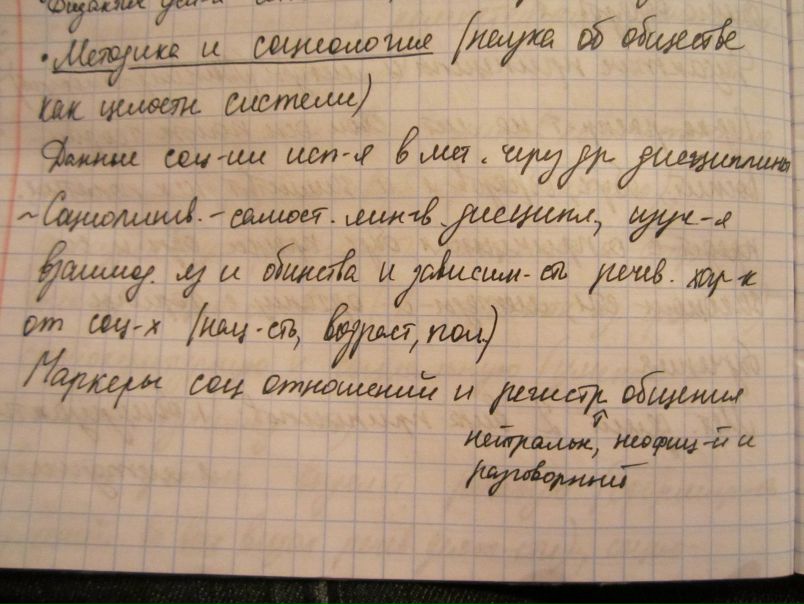 • Методика и социология (наука об обществе
как целостн системи)
Данные соц-ии исп-я в мет. через др дисциплины
~ Социолингв. - самост. лингв. дисципл, изуч-я
взаимод. яз и общества и зависим-сть речев. хар-к
от соц-х (нац-сть, возраст, пол)
Маркеры соц отношений и регистр общения
нейтральн, неофиц-й и
разговорный